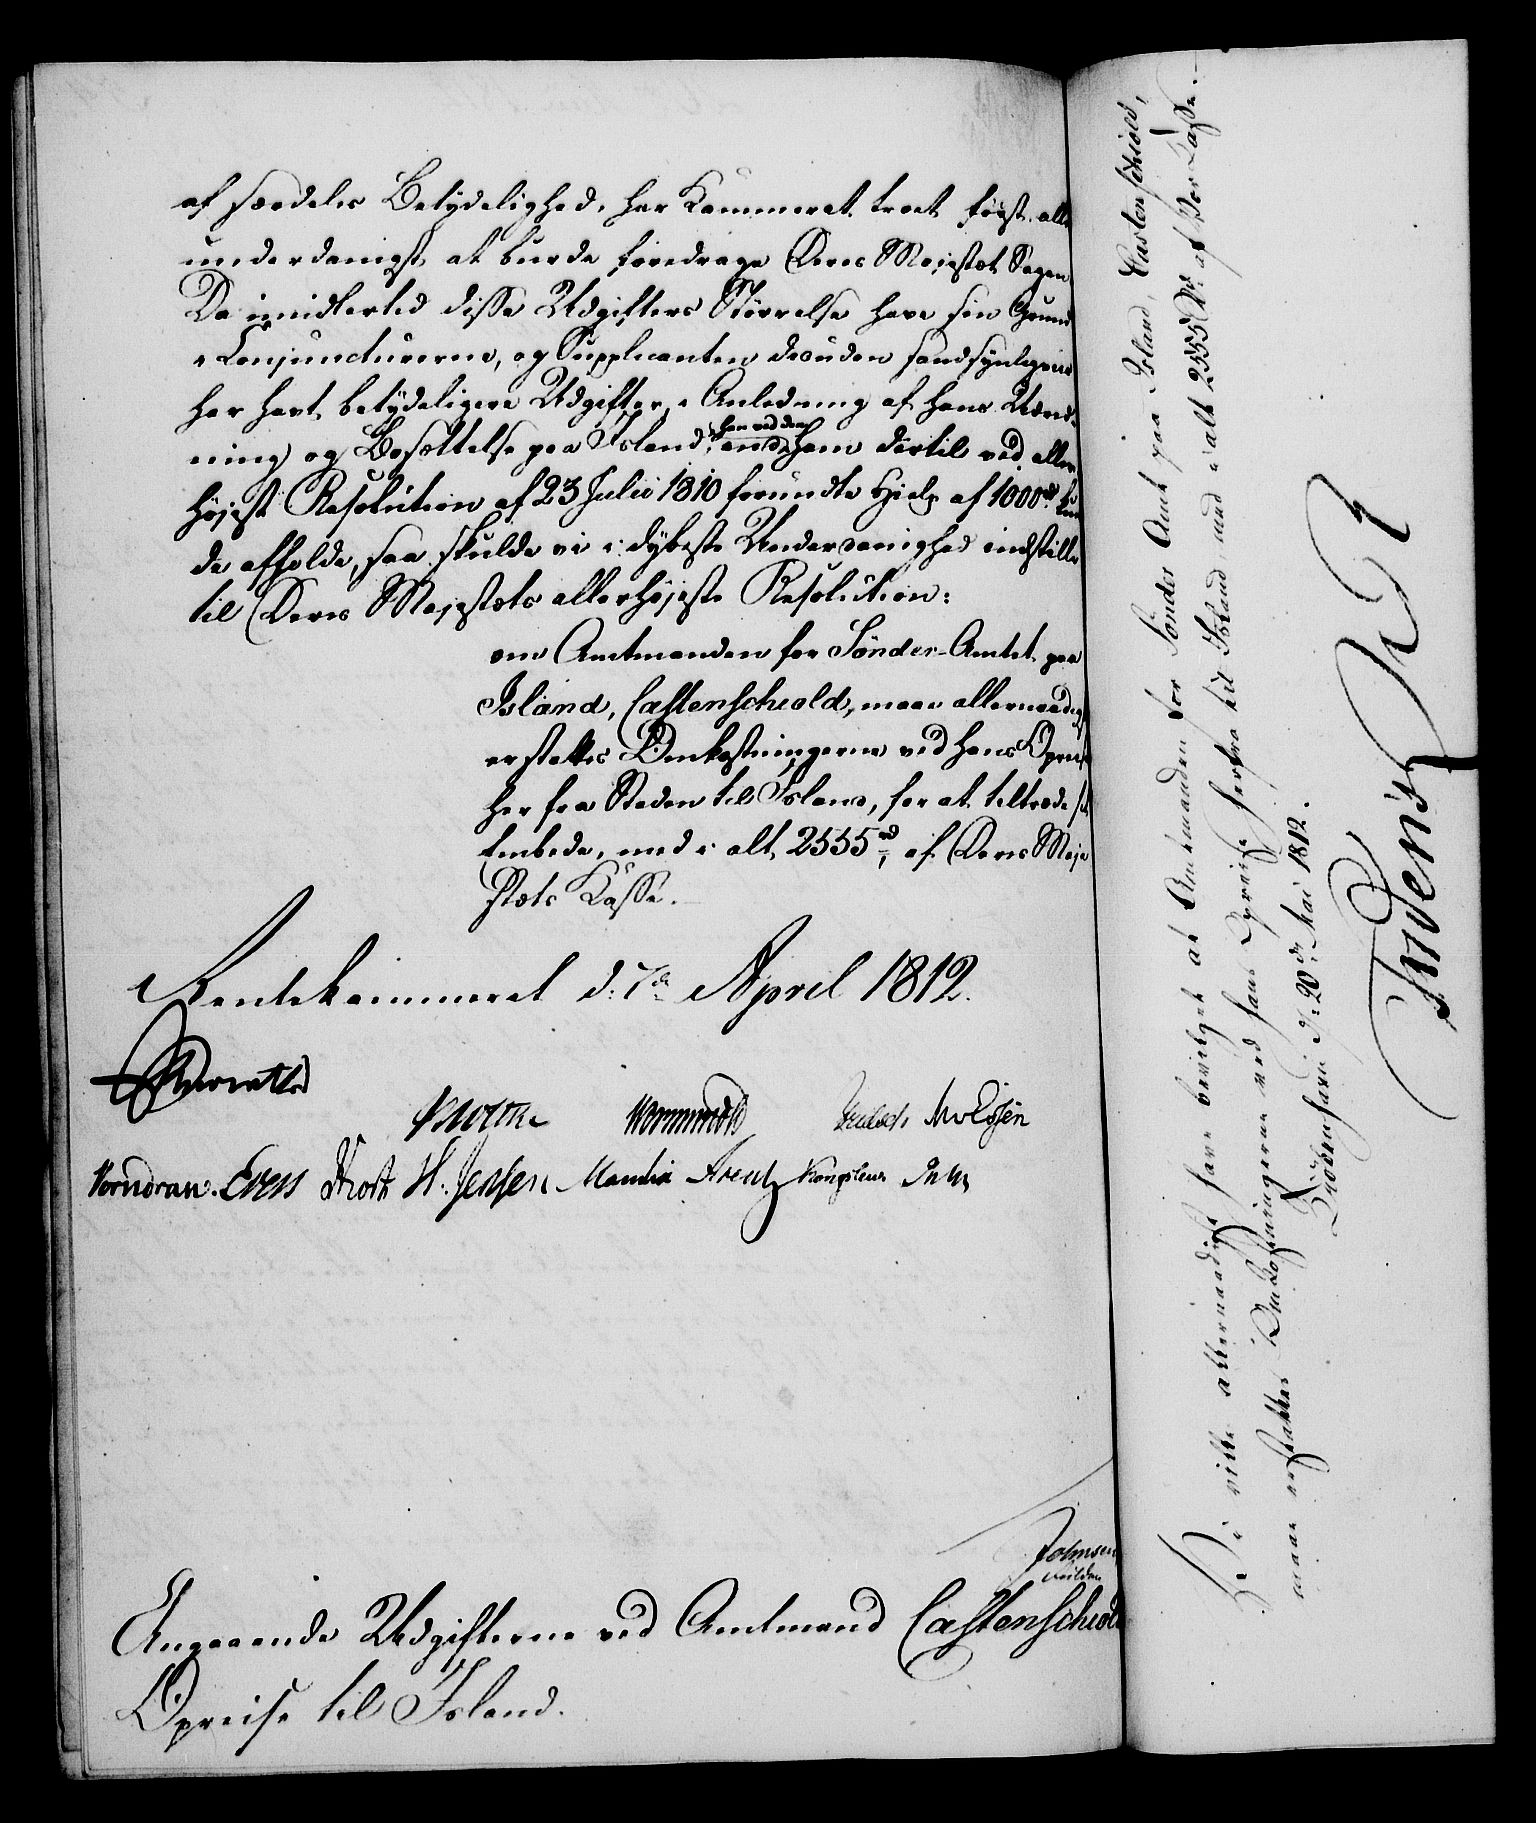 af særdeles Betydelighed, har Kammeret troet først aller
underdanigst at burde foredrage Deres Majestæt Sagen
Da imidlertid disse Udgifters Størrelse have sin Grund
i Conjuncturerne, og Supplicanten desuden sandsynligviis
har havt betydeligere Udgifter i Anledning af hans Udnæv-
ning og Besættelse paa Island, end han ved den ham dertil ved aller
højest Resolution af 23 Julii 1810 forundte Hielp af 1000 rd kun
de afholde, saa skulde vi i dybeste Underdanighed indstille
til Deres Majestæts allerhøjeste Resolution:
om Amtmanden for Sønder-Amtet paa
Island, Castenschiold, maae allernaadigst
erstattes Omkostningerne ved hans Opreise
her fra Staden til Island, for at tiltræde sit
Embede, med i alt 2555 rd, af Deres Maje
stæts Kasse.
Rentekammeret d: 7de April 1812.
Wormskiold Mvlssen
Vorndran. Evers Skott H. Jensen Mandix Arentz
Johnsen
Angaaende Udgifterne ved Amtmand Castenschiold
Opreise til Island.
Vi ville allernaadigst have bevilget at Amtmanden for Sønder Amt paa Island, Castenschiold,
maae erstattes Omkostningerne ved hans Opreise herfra til Island med i alt 2555 Rd. af Vor Kasse.
Kiøbenhavn d: 20de Mai 1812.
Frideric R